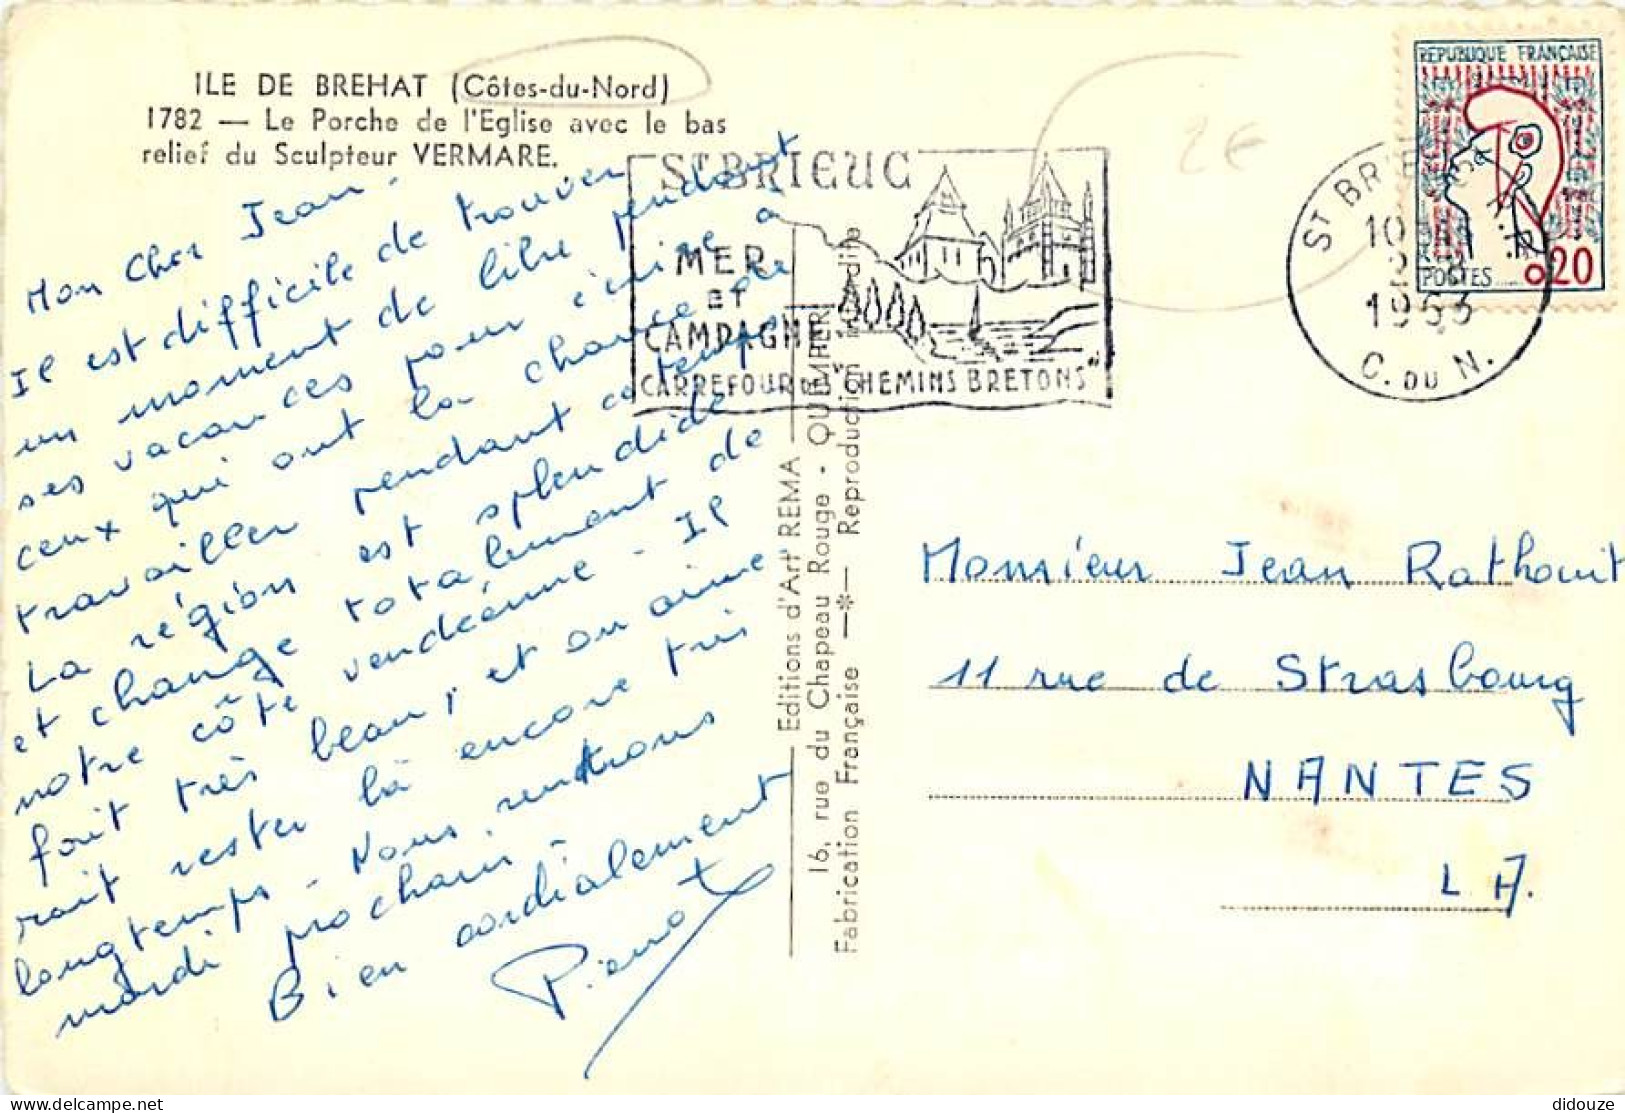 ILE DE BREHAT (Côtes-du-Nord)
1782 — Le Porche de l'Eglise avec le bas
relief du Sculpteur VERMARE.
Mon Cher Jean.
Il est difficile de trouver
un moment de libre pendant
ses vacances pour écrire à
ceux qui ont la chance de
travailler pendant ce temps
La région est splendide
et change totalement de
notre côte vendéenne. Il
fait très beau, et on aime
rait rester là encore très
longtemps. Nous rentrons
mardi prochain.
Bien cordialement
Pierrot
Editions d'Art REMA
16, rue du Chapeau Rouge - QUIMPER
Fabrication Française —*— Reproduction interdite
ST BRIEUC
MER
ET
CAMPAGNE
CARREFOUR DE "CHEMINS BRETONS"
2€
ST BRIEUC
1963
C. DU N.
REPUBLIQUE FRANÇAISE
POSTES
0,20
Monsieur Jean Rathouit
11 rue de Strasbourg
NANTES
L A.
didouze @ delcampe.net